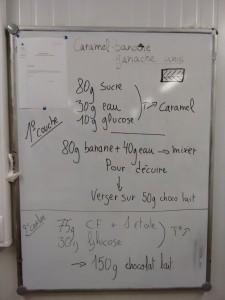 Caramel-banane
Ganache
80g sucre
30g eau
10g glucose
→ Caramel
1° couche
80g banane + 40g eau → mixer
Pour décuire
↓
Verser sur 50g choco lait
2° couche
75g CF + 1
30g glucose
→ 150g chocolat lait